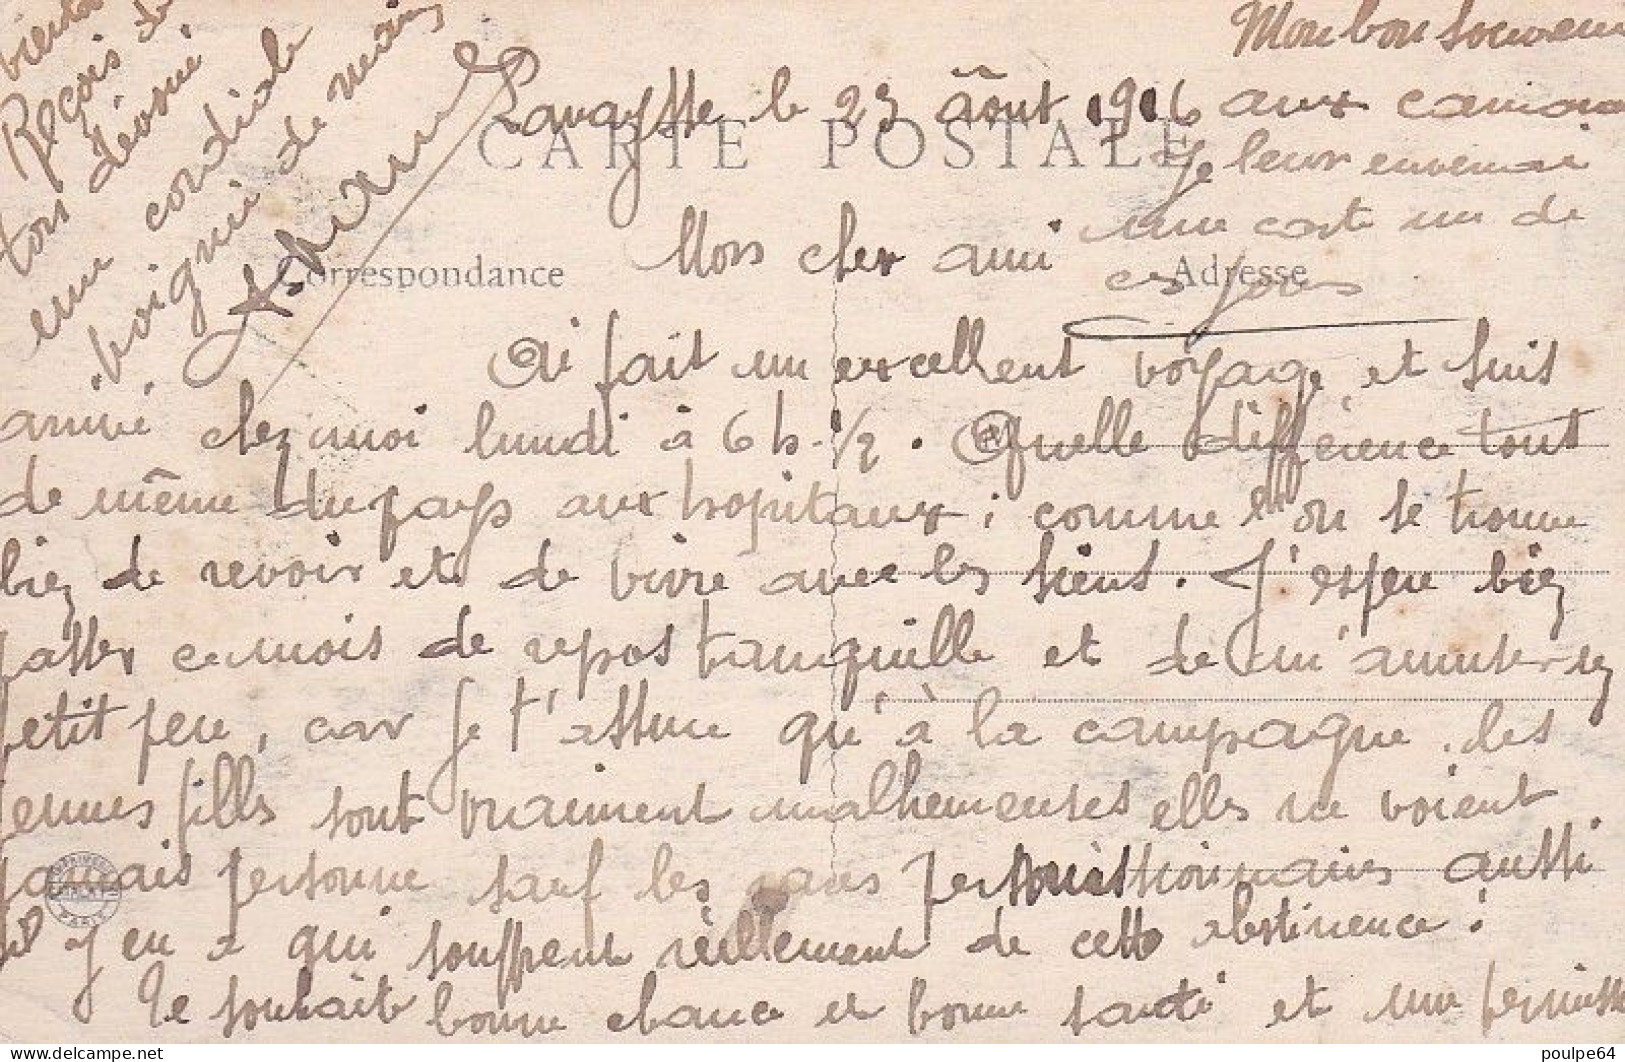 Lavaysse le 23 Août 1916
CARTE POSTALE
Correspondance
Adresse
Mon cher ami
Ai fait un excellent voyage et suis
arrivé chez moi lundi à 6 h. 1/2. Quelle différence tout
de même du pays aux hopitaux ; comme on se trouve
bien de revoir et de vivre avec les siens. J'espère bien
passer ce mois de repos tranquille et de m'amuser un
petit peu, car je t'assure qu'à la campagne les
jeunes filles sont vraiment malheureuses elles ne voient
jamais personne sauf les rares permissionnaires aussi
il y en a qui souffrent réellement de cette abstinence !
Te souhaite bonne chance et bonne santé et une permiss
bientôt
Reçois de
ton dévoué
une cordiale
poignée de mains
Mon bon souvenir
aux camara
je leur enverrai
une carte un de
ces jours
PARIS
delcampe.net
poulpe64